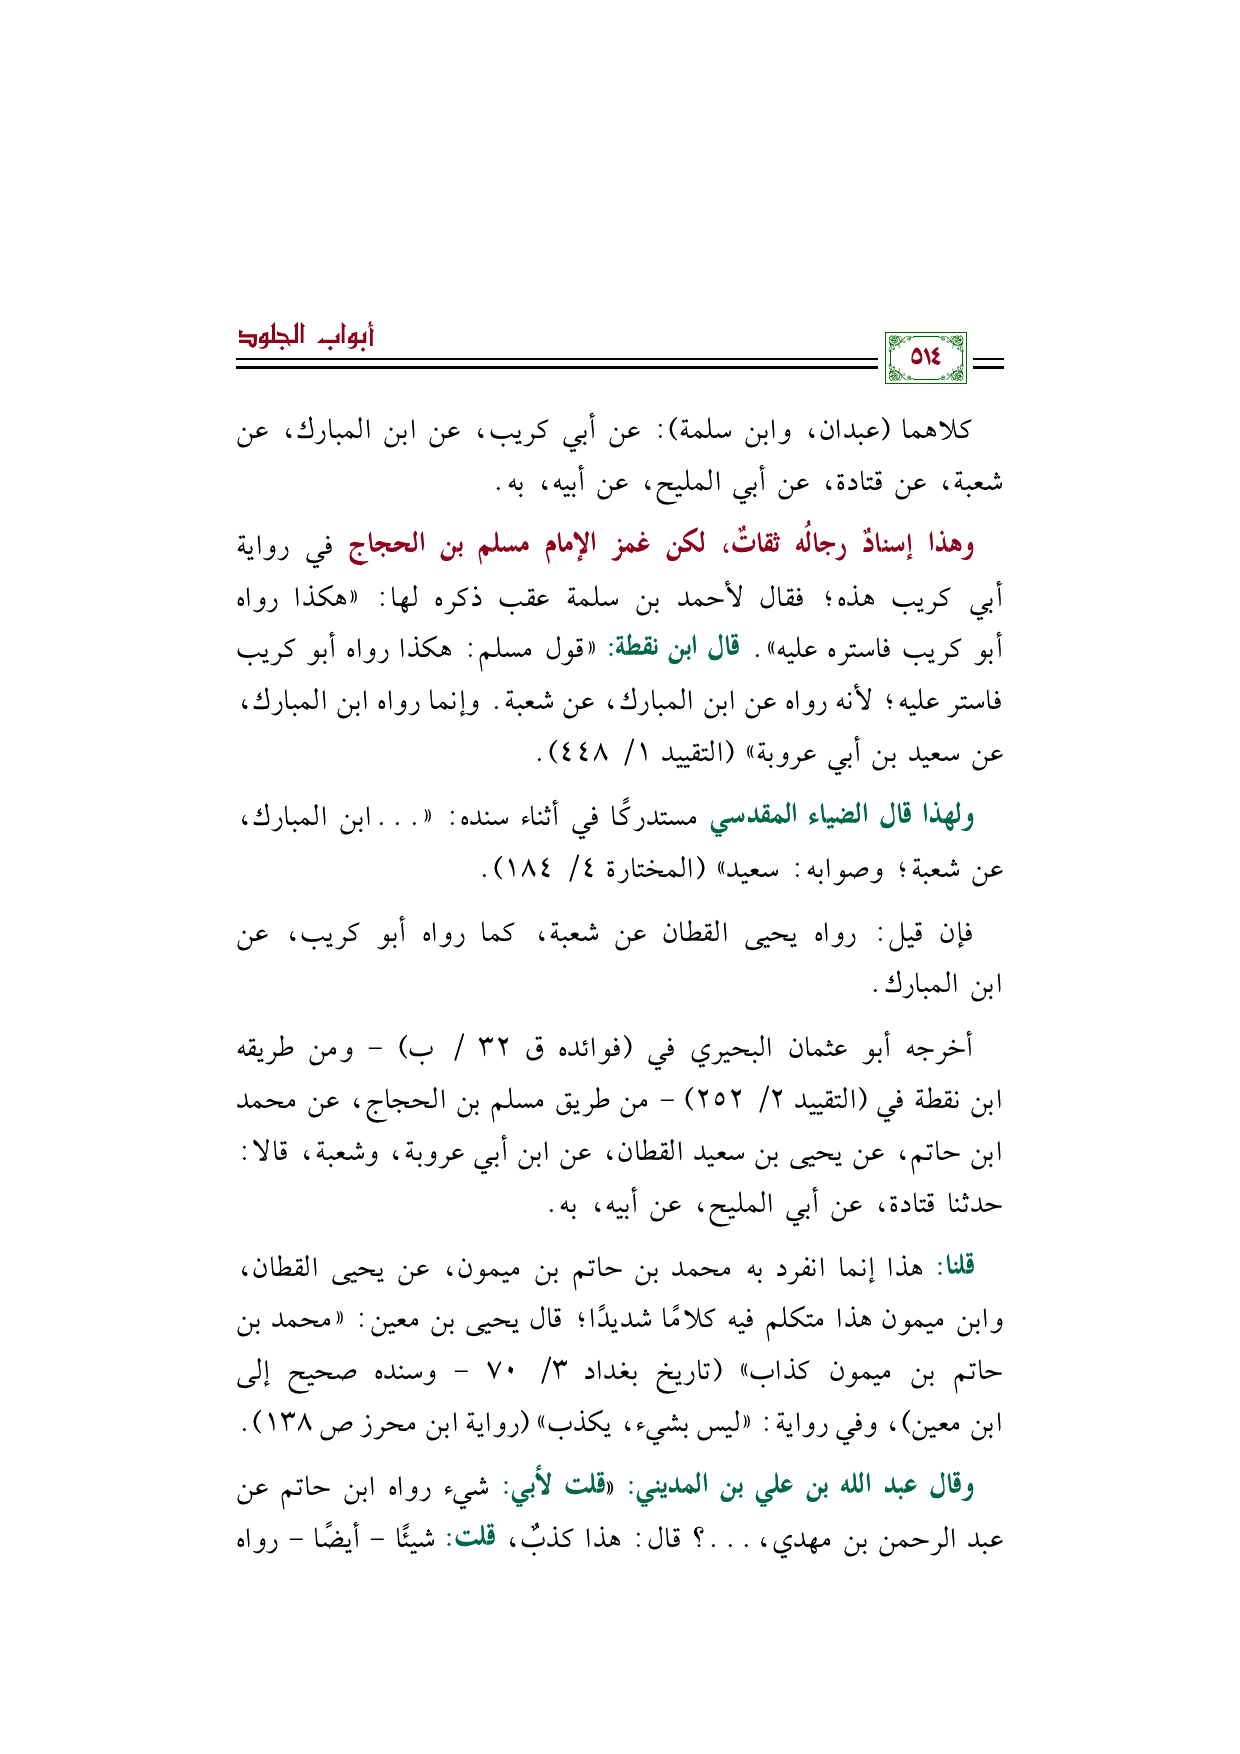 أبواب الجلود
٥١٤
كلاهما (عبدان، وابن سلمة): عن أبي كريب، عن ابن المبارك، عن
شعبة، عن قتادة، عن أبي المليح، عن أبيه، به.
وهذا إسنادٌ رجالُه ثقاتٌ، لكن غمز الإمام مسلم بن الحجاج في رواية
أبي كريب هذه؛ فقال لأحمد بن سلمة عقب ذكره لها: «هكذا رواه
أبو كريب فاستره عليه». قال ابن نقطة: «قول مسلم: هكذا رواه أبو كريب
فاستر عليه؛ لأنه رواه عن ابن المبارك، عن شعبة. وإنما رواه ابن المبارك،
عن سعيد بن أبي عروبة» (التقييد ١/ ٤٤٨).
ولهذا قال الضياء المقدسي مستدركًا في أثناء سنده: «...ابن المبارك،
عن شعبة؛ وصوابه: سعيد» (المختارة ٤/ ١٨٤).
فإن قيل: رواه يحيى القطان عن شعبة، كما رواه أبو كريب، عن
ابن المبارك.
أخرجه أبو عثمان البحيري في (فوائده ق ٣٢ / ب) – ومن طريقه
ابن نقطة في (التقييد ٢/ ٢٥٢) – من طريق مسلم بن الحجاج، عن محمد
ابن حاتم، عن يحيى بن سعيد القطان، عن ابن أبي عروبة، وشعبة، قالا:
حدثنا قتادة، عن أبي المليح، عن أبيه، به.
قلنا: هذا إنما انفرد به محمد بن حاتم بن ميمون، عن يحيى القطان،
وابن ميمون هذا متكلم فيه كلامًا شديدًا؛ قال يحيى بن معين: «محمد بن
حاتم بن ميمون كذاب» (تاريخ بغداد ٣/ ٧٠ – وسنده صحيح إلى
ابن معين)، وفي رواية: «ليس بشيء، يكذب» (رواية ابن محرز ص ١٣٨).
وقال عبد الله بن علي بن المديني: «قلت لأبي: شيء رواه ابن حاتم عن
عبد الرحمن بن مهدي، ...؟ قال: هذا كذبٌ، قلت: شيئًا – أيضًا – رواه